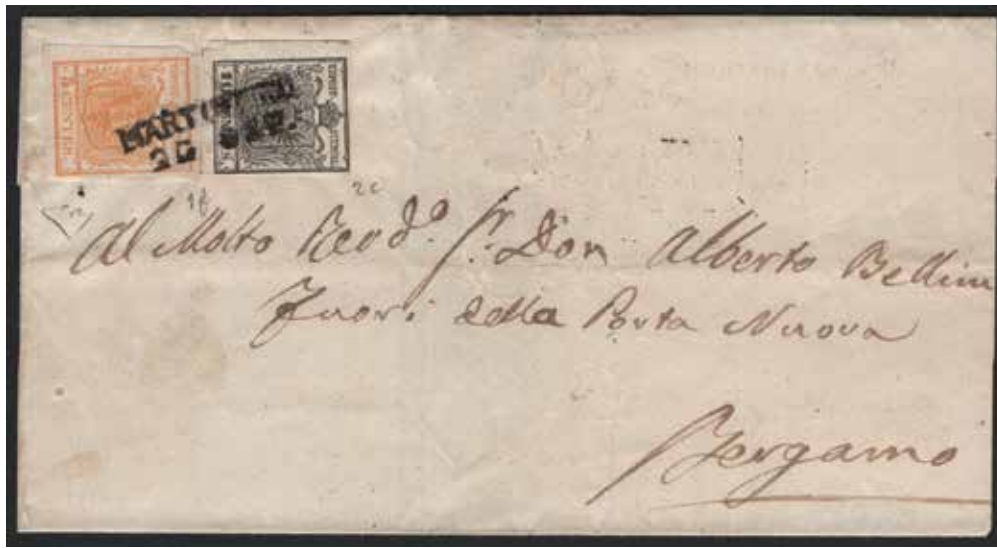 MARTINENGO
1f 2c
Al Molto Revd.o Sr. Don Alberto Bellini
Fuori della Porta Nuova
Bergamo